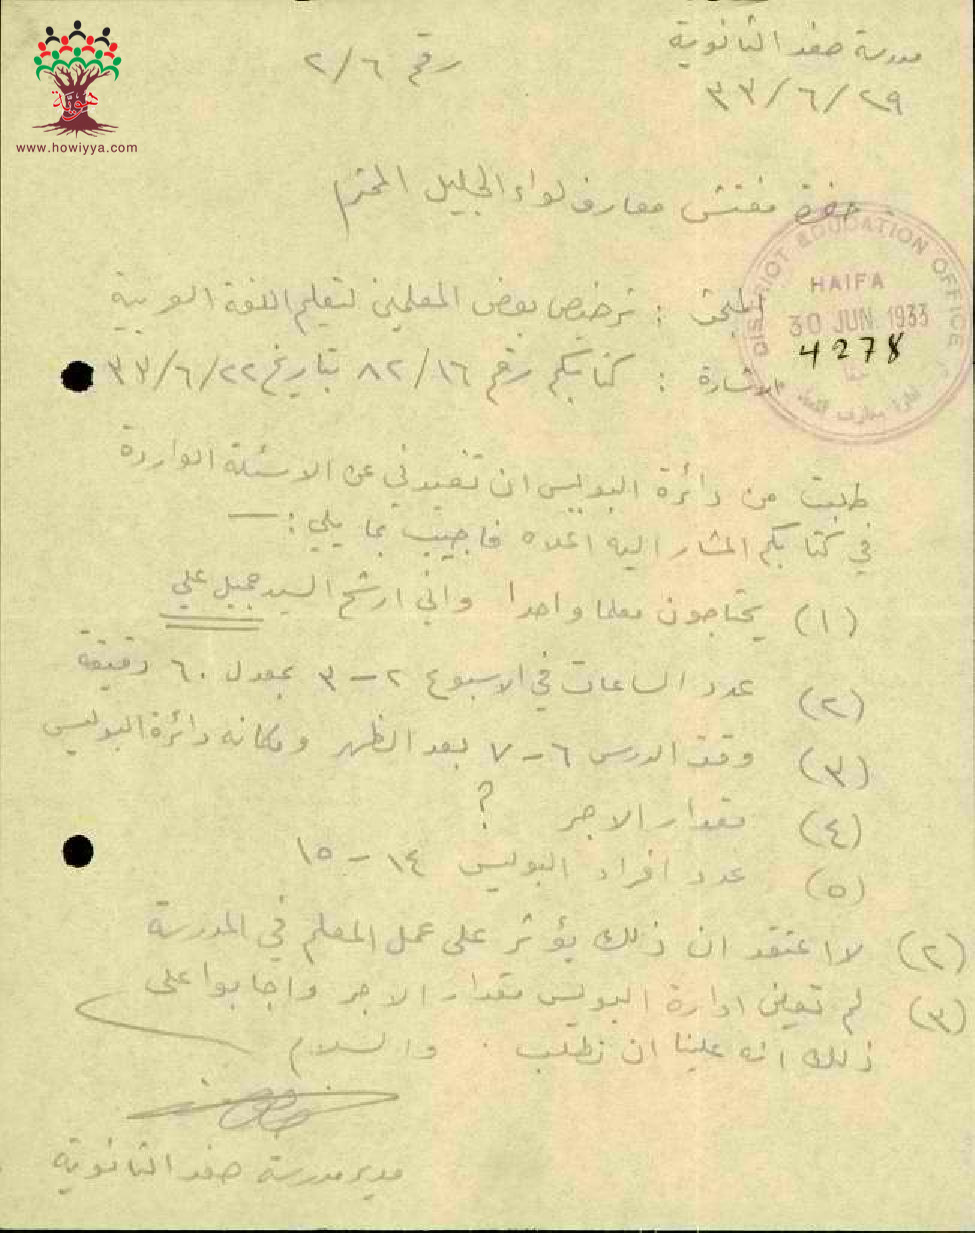 مدرسة صفد الثانوية
رقم ٢/٦
٣٣/٦/٢٩
هوية
www.howiyya.com
حضرة مفتش معارف لواء الجليل المحترم
DISTRICT EDUCATION OFFICE
HAIFA
30 JUN. 1933
4278
حيفا
ادارة معارف
المبحث : ترخيص بعض المعلمين لتعليم اللغة العربية
الاشارة : كتابكم رقم ٨٢/١٦ بتاريخ ٣٣/٦/٢٢
طلبت من دائرة البوليس ان تفيدني عن الاسئلة الواردة
في كتابكم المشار اليه اعلاه فاجيب بما يلي :—
(١) يحتاجون معلما واحدا واني ارشح السيد جميل علي
(٢) عدد الساعات في الاسبوع ٢ – ٣ بمعدل ٦٠ دقيقة
(٣) وقت الدرس ٦ – ٧ بعد الظهر ومكانه دائرة البوليس
(٤) مقدار الاجر ؟
(٥) عدد افراد البوليس ١٤ – ١٥
(٢) لا اعتقد ان ذلك يؤثر على عمل المعلم في المدرسة
(٣) لم تعين ادارة البوليس مقدار الاجر واجابوا على
ذلك انه علينا ان نطلب . والسلام
مدير مدرسة صفد الثانوية